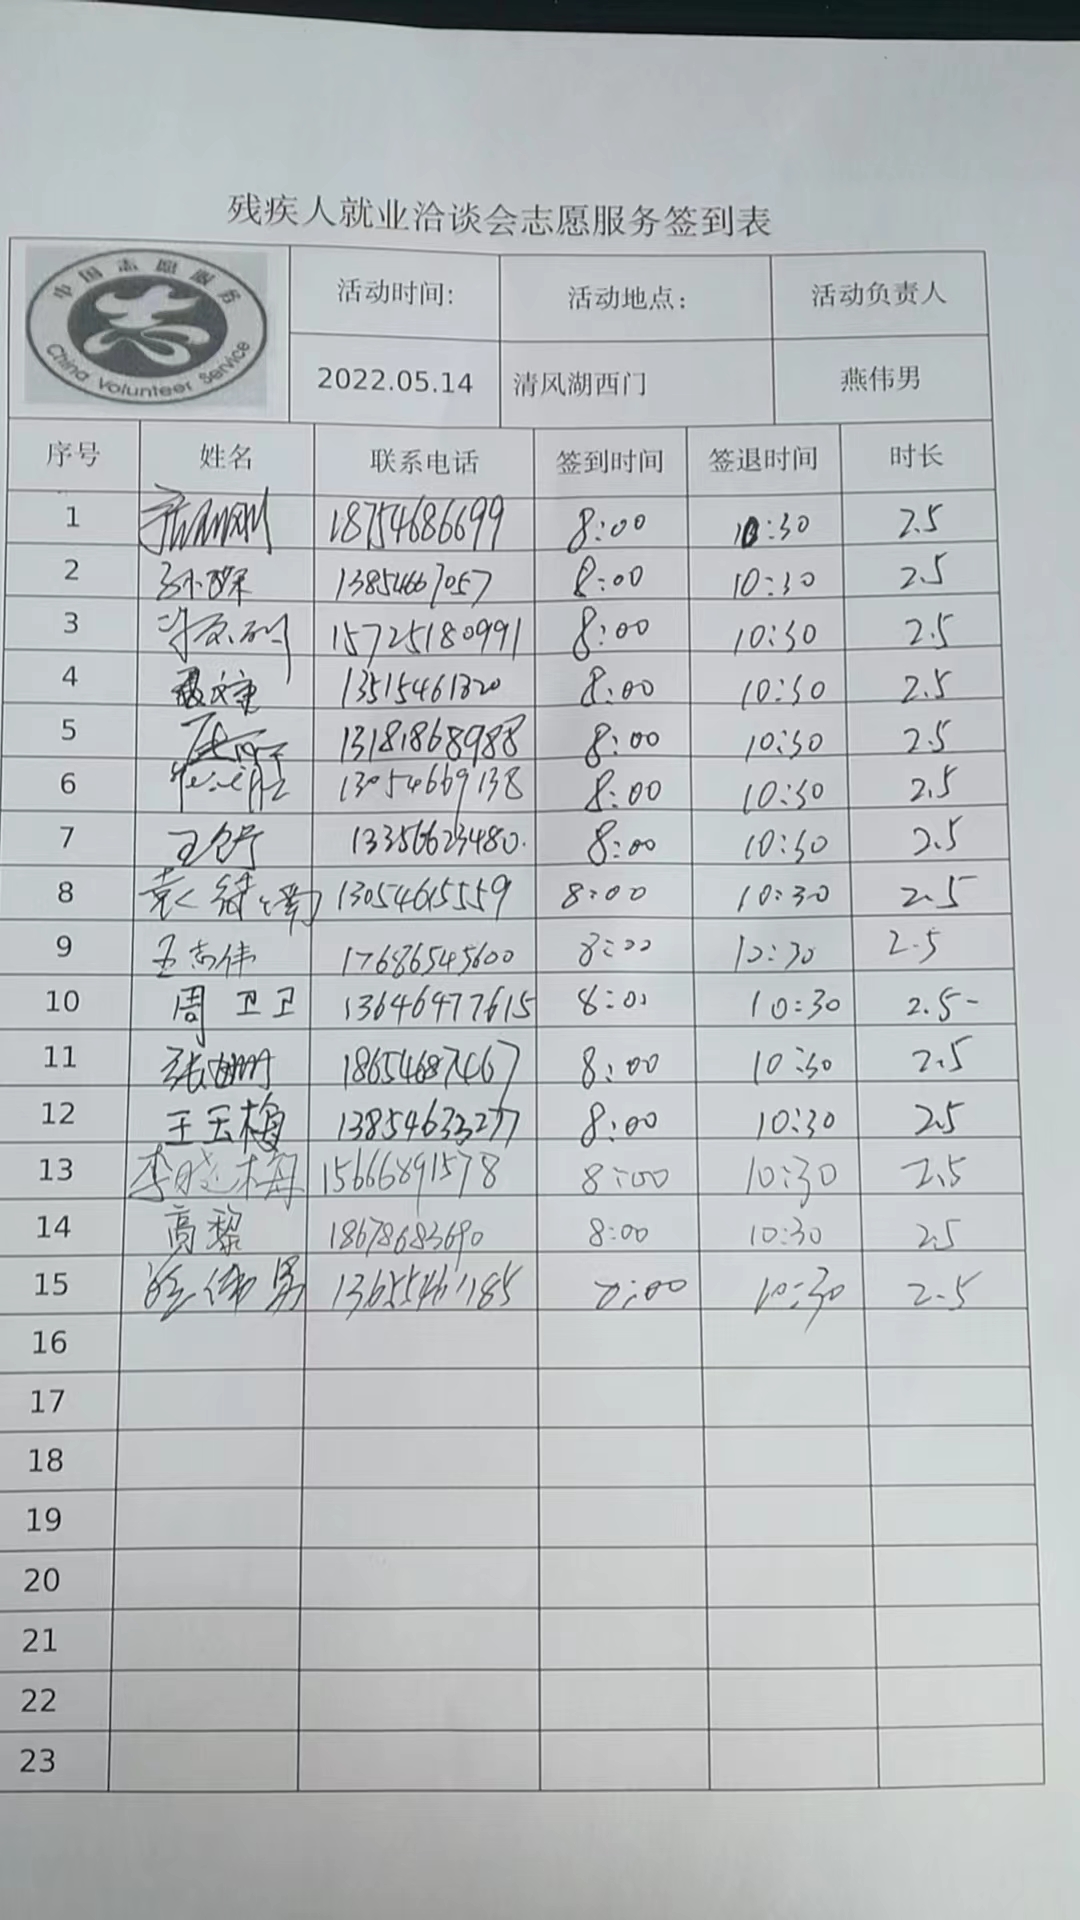 残疾人就业洽谈会志愿服务签到表
中国志愿服务
China Volunteer Service
活动时间: 活动地点: 活动负责人
2022.05.14 清风湖西门 燕伟男
序号 姓名 联系电话 签到时间 签退时间 时长
1 18754686699 8:00 10:30 2.5
2 13854667057 8:00 10:30 2.5
3 15725180991 8:00 10:30 2.5
4 13515461820 8:00 10:30 2.5
5 13181868988 8:00 10:30 2.5
6 13054669138 8:00 10:30 2.5
7 13356623480 8:00 10:30 2.5
8 13054615559 8:00 10:30 2.5
9 王志伟 17686545600 8:00 10:30 2.5
10 周卫卫 13646477615 8:00 10:30 2.5
11 18654687467 8:00 10:30 2.5
12 王玉梅 13854633277 8:00 10:30 2.5
13 李晓梅 15666891578 8:00 10:30 2.5
14 高黎 18678683690 8:00 10:30 2.5
15 燕伟男 13655461185 8:00 10:30 2.5
16
17
18
19
20
21
22
23